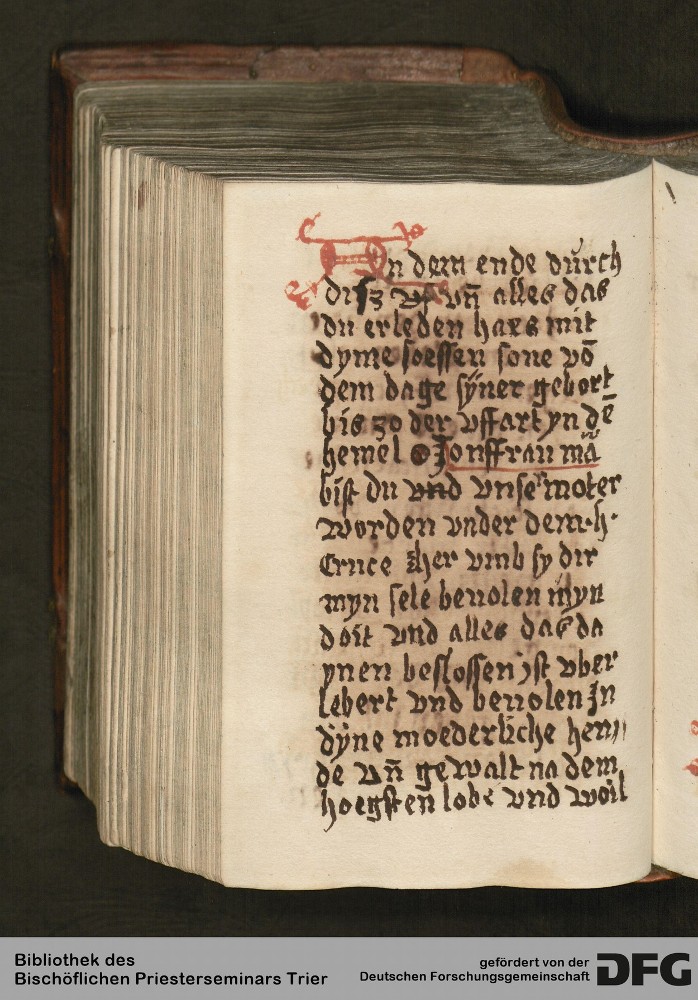 In dem ende durch
disz vn̄ alles das
du erleden haes mit
dyme soessen sone vō
dem dage sÿner gebort
bis zo der vffart yn dē
hemel Jonffrau mā
bist du vnd vnser moter
worden vnder dem·h·
Cruce her vmb sy dir
myn sele beuolen mÿn
doit vnd alles das da
ynen beslossen jst vber
lebert vnd beuolen Jn
dÿne moederliche hen
de vn̄ gewalt na dem
hoegsten lobe vnd woil
Bibliothek des
Bischöflichen Priesterseminars Trier
gefördert von der
Deutschen Forschungsgemeinschaft
DFG